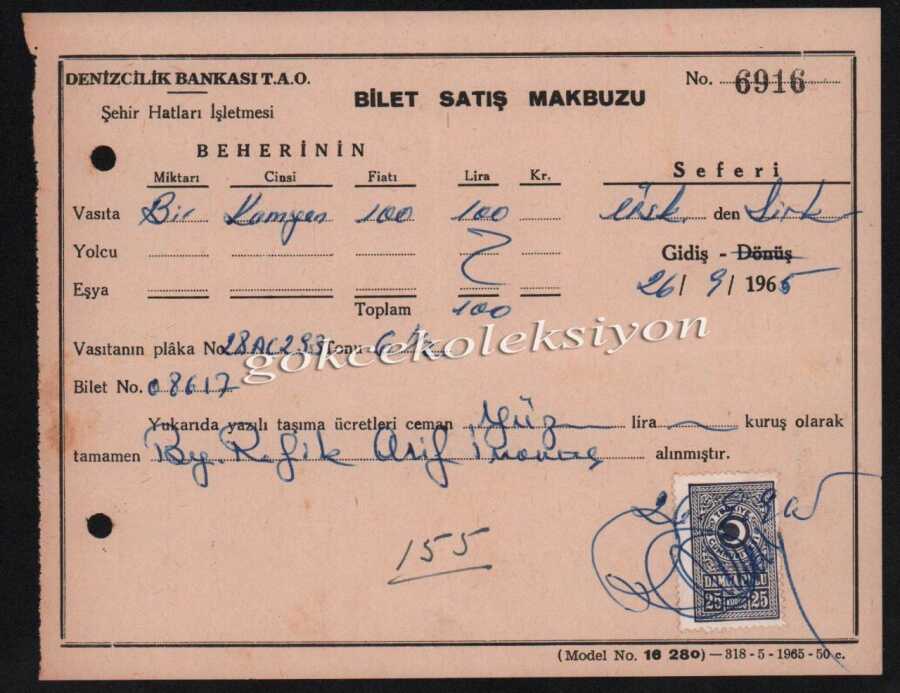 DENİZCİLİK BANKASI T.A.O.
Şehir Hatları İşletmesi
BİLET SATIŞ MAKBUZU
No. 6916
BEHERİNİN
Miktarı Cinsi Fiatı Lira Kr.
Seferi
Vasıta Bir Kamyon 100 100
Üsk. den Sirk
Yolcu
Gidiş - Dönüş
Eşya
26/9/1965
Toplam 100
Vasıtanın plâka No. 28AC293 Tonu
gokcekoleksiyon
Bilet No. 08617
Yukarıda yazılı taşıma ücretleri ceman Yüz lira kuruş olarak
tamamen By. Refik Arif alınmıştır.
155
TÜRKİYE
CUMHURİYETİ
DAMGA PULU
25 KURUŞ 25
(Model No. 16 280) — 318 - 5 - 1965 - 50 c.